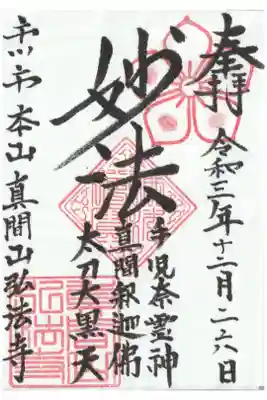 奉拝
令和三年十二月二六日
妙法
手児奈霊神
真間釈迦佛
太刀大黒天
本山真間山弘法寺